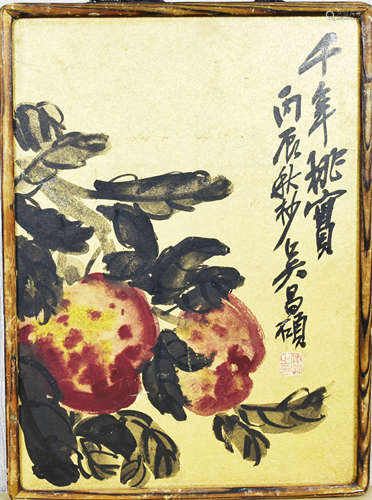 千年桃實
丙辰秋杪吳昌碩